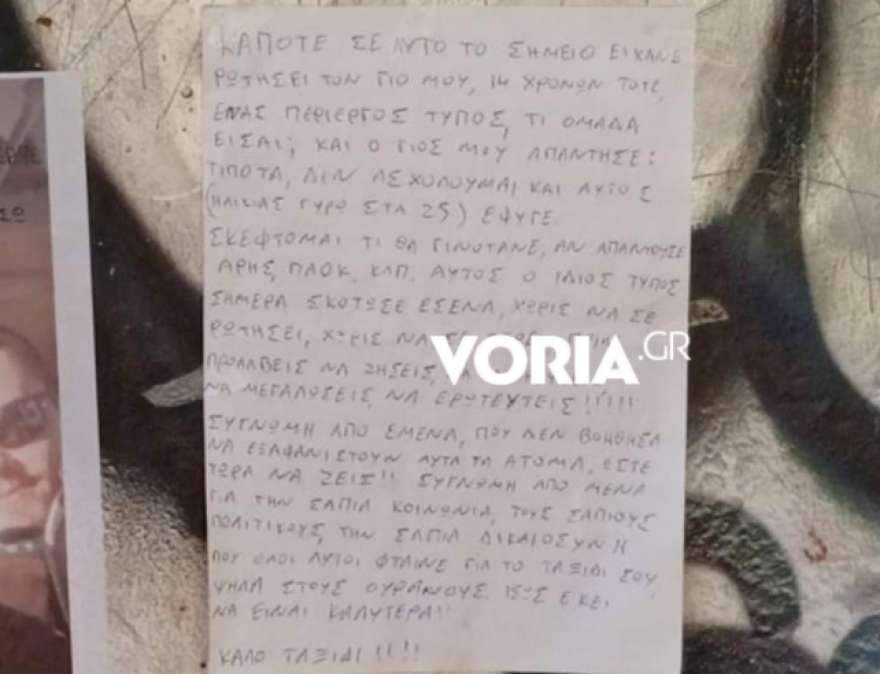 ΚΑΠΟΤΕ ΣΕ ΑΥΤΟ ΤΟ ΣΗΜΕΙΟ ΕΙΧΑΝΕ
ΡΩΤΗΣΕΙ ΤΟΝ ΓΙΟ ΜΟΥ, 14 ΧΡΟΝΩΝ ΤΟΤΕ,
ΕΝΑΣ ΠΕΡΙΕΡΓΟΣ ΤΥΠΟΣ, ΤΙ ΟΜΑΔΑ
ΕΙΣΑΙ; ΚΑΙ Ο ΓΙΟΣ ΜΟΥ ΑΠΑΝΤΗΣΕ:
ΤΙΠΟΤΑ, ΔΕΝ ΑΣΧΟΛΟΥΜΑΙ ΚΑΙ ΑΥΤΟΣ
(ΗΛΙΚΙΑΣ ΓΥΡΩ ΣΤΑ 25) ΕΦΥΓΕ.
ΣΚΕΦΤΟΜΑΙ ΤΙ ΘΑ ΓΙΝΟΤΑΝΕ, ΑΝ ΑΠΑΝΤΟΥΣΕ
ΑΡΗΣ, ΠΑΟΚ, ΚΛΠ. ΑΥΤΟΣ Ο ΙΔΙΟΣ ΤΥΠΟΣ
ΣΗΜΕΡΑ ΣΚΟΤΩΣΕ ΕΣΕΝΑ, ΧΩΡΙΣ ΝΑ ΣΕ
ΡΩΤΗΣΕΙ, ΧΩΡΙΣ ΝΑ ΣΕ
VORIA.GR
ΠΡΟΛΑΒΕΙΣ ΝΑ ΖΗΣΕΙΣ,
ΝΑ ΜΕΓΑΛΩΣΕΙΣ, ΝΑ ΕΡΩΤΕΥΤΕΙΣ!!!!!
ΣΥΓΝΩΜΗ ΑΠΟ ΕΜΕΝΑ, ΠΟΥ ΔΕΝ ΒΟΗΘΗΣΑ
ΝΑ ΕΞΑΦΑΝΙΣΤΟΥΝ ΑΥΤΑ ΤΑ ΑΤΟΜΑ, ΩΣΤΕ
ΤΩΡΑ ΝΑ ΖΕΙΣ!! ΣΥΓΝΩΜΗ ΑΠΟ ΜΕΝΑ
ΓΙΑ ΤΗΝ ΣΑΠΙΑ ΚΟΙΝΩΝΙΑ, ΤΟΥΣ ΣΑΠΙΟΥΣ
ΠΟΛΙΤΙΚΟΥΣ, ΤΗΝ ΣΑΠΙΑ ΔΙΚΑΙΟΣΥΝΗ
ΠΟΥ ΟΛΟΙ ΑΥΤΟΙ ΦΤΑΙΝΕ ΓΙΑ ΤΟ ΤΑΞΙΔΙ ΣΟΥ
ΨΗΛΑ ΣΤΟΥΣ ΟΥΡΑΝΟΥΣ. ΙΣΩΣ ΕΚΕΙ
ΝΑ ΕΙΝΑΙ ΚΑΛΥΤΕΡΑ!!
ΚΑΛΟ ΤΑΞΙΔΙ!!!!